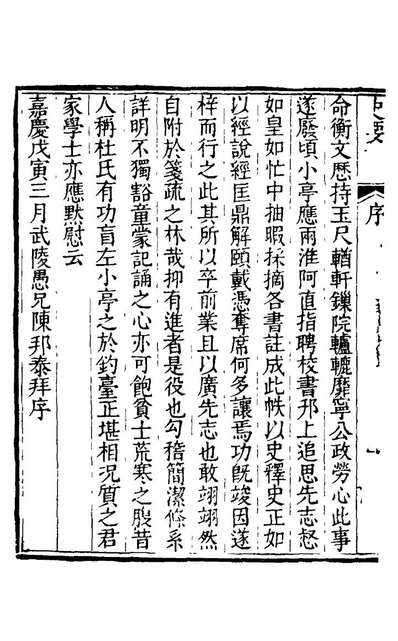 史要
序
命衡文歷持玉尺輶軒鏁院轆轤靡寧公政勞心此事
遂廢頃小亭應兩淮阿直指聘校書邗上追思先志惄
如皇如忙中抽暇採摘各書註成此帙以史釋史正如
以經說經匡鼎解頤戴憑奪席何多讓焉功旣竣因遂
梓而行之此其所以卒前業且以廣先志也敢翊翊然
自附於箋疏之林哉抑有進者是役也勾稽簡潔條系
詳明不獨豁童蒙記誦之心亦可飽貧士荒寒之腹昔
人稱杜氏有功盲左小亭之於鈞臺正堪相況質之君
家學士亦應默慰云
嘉慶戊寅三月武陵愚兄陳邦泰拜序